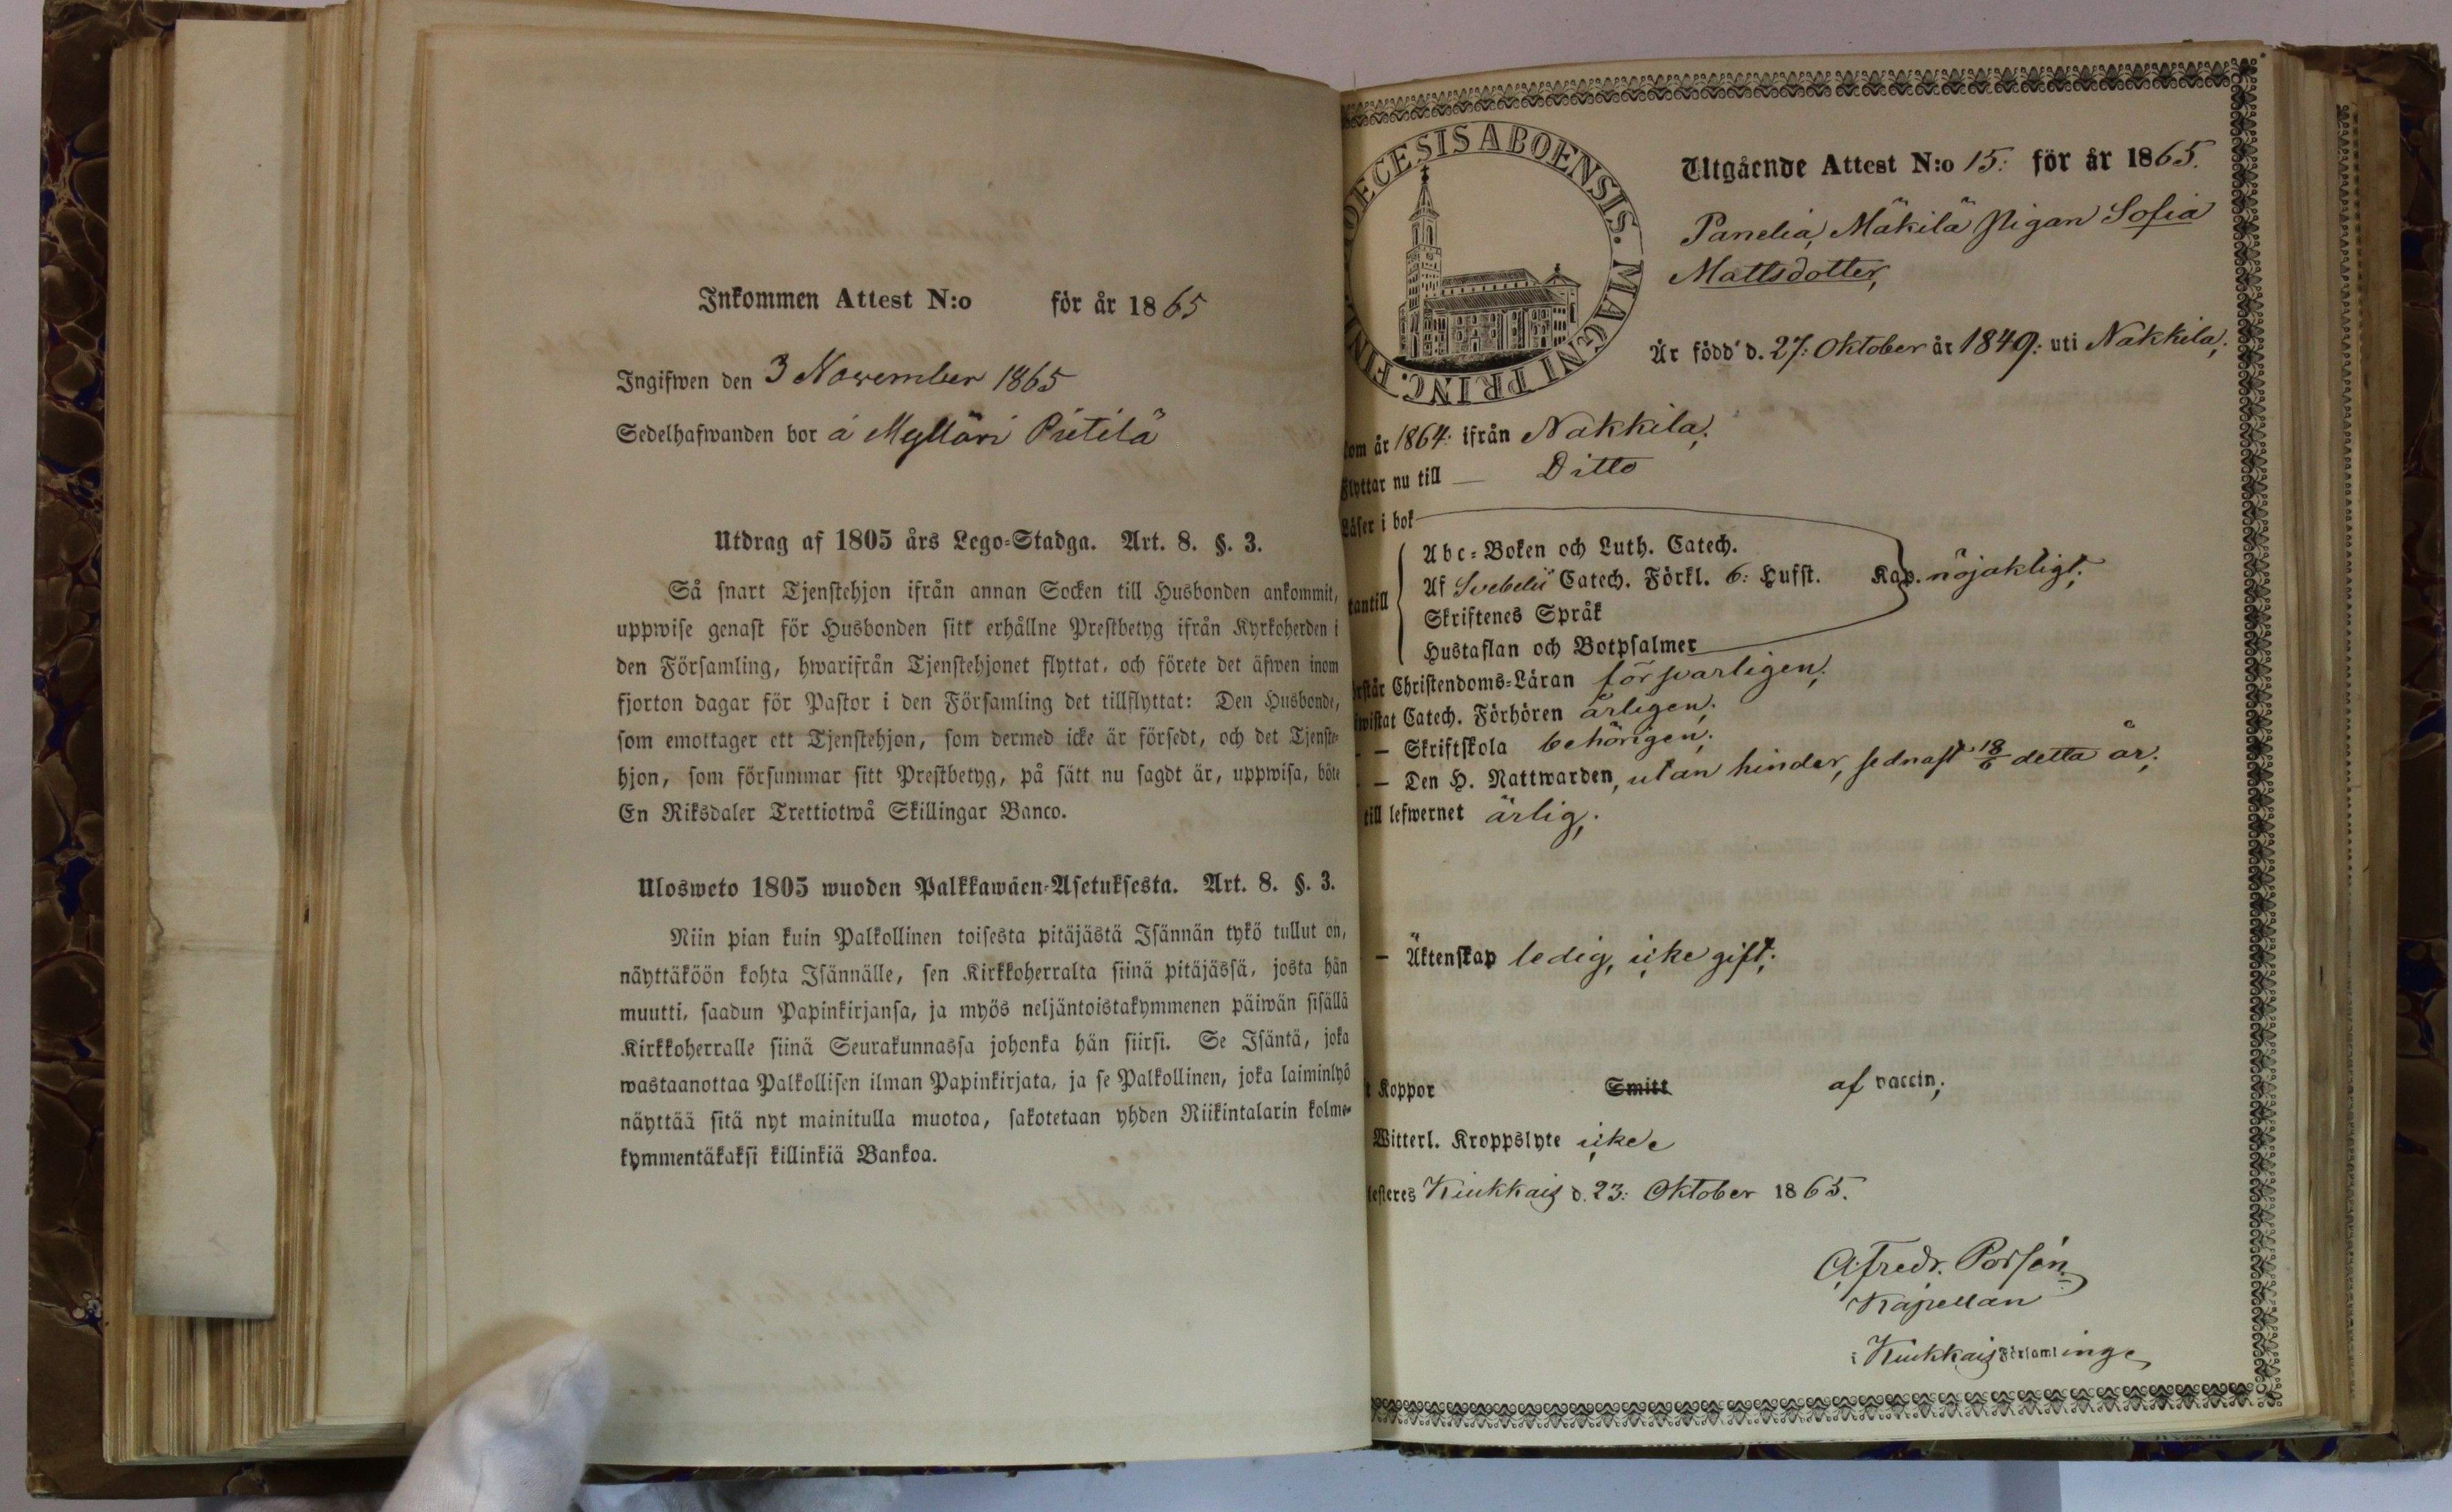 Inkommen Attest N:o för år 1865
Ingifwen den 3 November 1865
Sedelhafwanden bor å Mylläri Pietilä
Utdrag af 1805 års Lego-Stadga. Art. 8. §. 3.
Så snart Tjenstehjon ifrån annan Socken till Husbonden ankommit,
uppwise genast för Husbonden sitt erhållne Prestbetyg ifrån Kyrkoherden i
den Församling, hwarifrån Tjenstehjonet flyttat, och förete det äfwen inom
fjorton dagar för Pastor i den Församling det tillflyttat: Den Husbonde,
som emottager ett Tjenstehjon, som dermed icke är försedt, och det Tjenste-
hjon, som försummar sitt Prestbetyg, på sätt nu sagdt är, uppwisa, böte
En Riksdaler Trettiotwå Skillingar Banco.
Ulosweto 1805 wuoden Palkkawäen-Asetuksesta. Art. 8. §. 3.
Niin pian kuin Palkollinen toisesta pitäjästä Isännän tykö tullut on,
näyttäköön kohta Isännälle, sen Kirkkoherralta siinä pitäjässä, josta hän
muutti, saadun Papinkirjansa, ja myös neljäntoistakymmenen päiwän sisällä
Kirkkoherralle siinä Seurakunnassa johonka hän siirsi. Se Isäntä, joka
wastaanottaa Palkollisen ilman Papinkirjata, ja se Palkollinen, joka laiminlyö
näyttää sitä nyt mainitulla muotoa, sakotetaan yhden Riikintalarin kolme-
kymmentäkaksi killinkiä Bankoa.
OECESIS ABOENSIS. MAGNI PRINC. FINL
Utgående Attest N:o 15: för år 1865.
Panelia, Mäkilä Pigan Sofia
Mattsdotter,
Är född d. 27: Oktober år 1849: uti Nakkila;
kom år 1864: ifrån Nakkila;
Flyttar nu till — Ditto
Läser i bok
Abc-Boken och Luth. Catech.
utantill Af Svebelii Catech. Förkl. 6: Hufst. Kap. nöjaktigt;
Skriftenes Språk
Hustaflan och Botpsalmer
rstår Christendoms-Läran försvarligen;
wistat Catech. Förhören årligen;
— Skriftskola behörigen;
— Den H. Nattwarden, utan hinder, sednast 18/6 detta år;
till lefwernet ärlig;
— Äktenskap ledig, icke gift;
t Koppor Smitt af vaccin;
Witterl. Kroppslyte icke
testeres Kiukkais d. 23: Oktober 1865.
A. Fredr. Porsén
Kapellan
i Kiukkais Församlinge